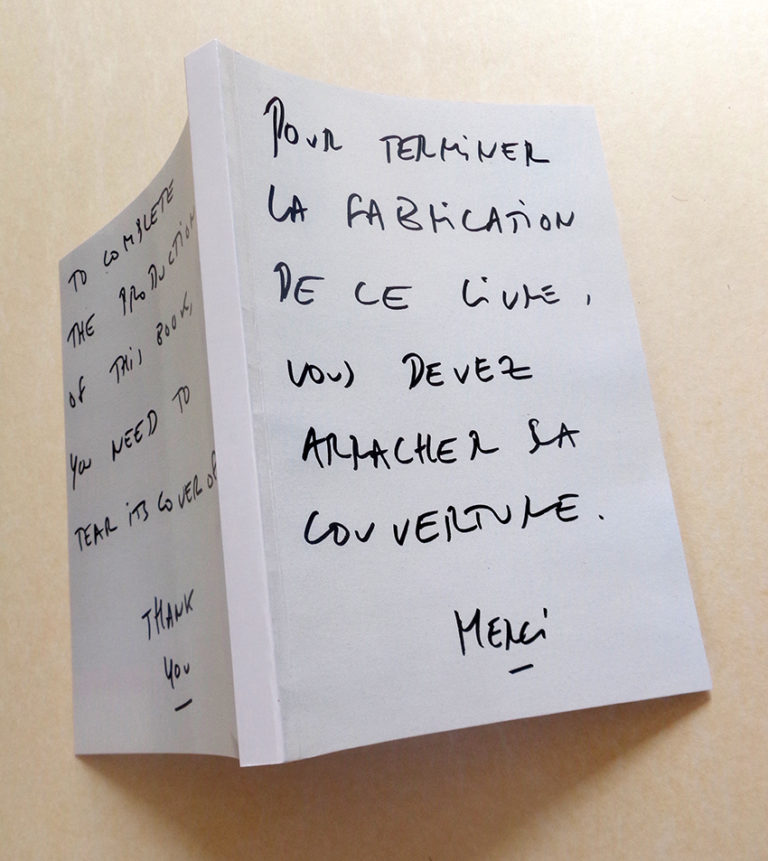 TO COMPLETE
THE PRODUCTION
OF THIS BOOK,
YOU NEED TO
TEAR ITS COVER OF
THANK
YOU
POUR TERMINER
LA FABRICATION
DE CE LIVRE,
VOUS DEVEZ
ARRACHER SA
COUVERTURE.
MERCI